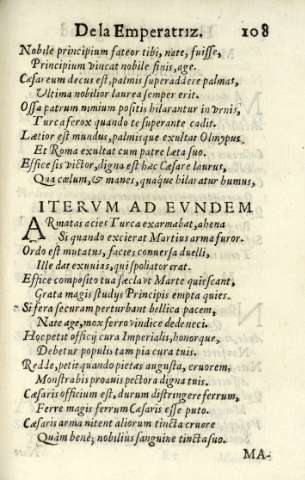 De la Emperatriz. 108
Nobile principium fateor tibi, nate, fuisse,
Principium vincat nobile finis, age.
Cæsareum decus est, palmis superaddere palmas,
Ultima nobilior laurea semper erit.
Ossa patrum nimium positis hilarantur in vrnis,
Turca ferox quando te superante cadit.
Lætior est mundus, palmisque exultat Olympus.
Et Roma exultat cum patre læta suo.
Effice sis victor, digna est hæc Cæsare laurus,
Qua cœlum, & manes, quaque hilaratur humus,
ITERVM AD EVNDEM
ARmatas acies Turca exarmabat, ahena
Si quando excierat Martius arma furor.
Ordo est mutatus, facies conuersa duelli,
Ille dat exuuias, qui spoliator erat.
Effice composito tua sæcla vt Marte quiescant,
Grata magis studys Principis empta quies.
Si fera securam perturbant bellica pacem,
Nate age, mox ferro vindice
Hoc petit officij cura Imperialis, honorque,
Debetur populis tam pia cura tuis.
Redde, petit quando pietas augusta, cruorem,
Monstrabis proauis pectora digna tuis.
Cæsaris officium est, durum distringere ferrum,
Ferre magis ferrum Cæsaris esse puto.
Cæsaris arma nitent aliorum tincta cruore
Quàm benè; nobilius sanguine tincta suo.
MA-